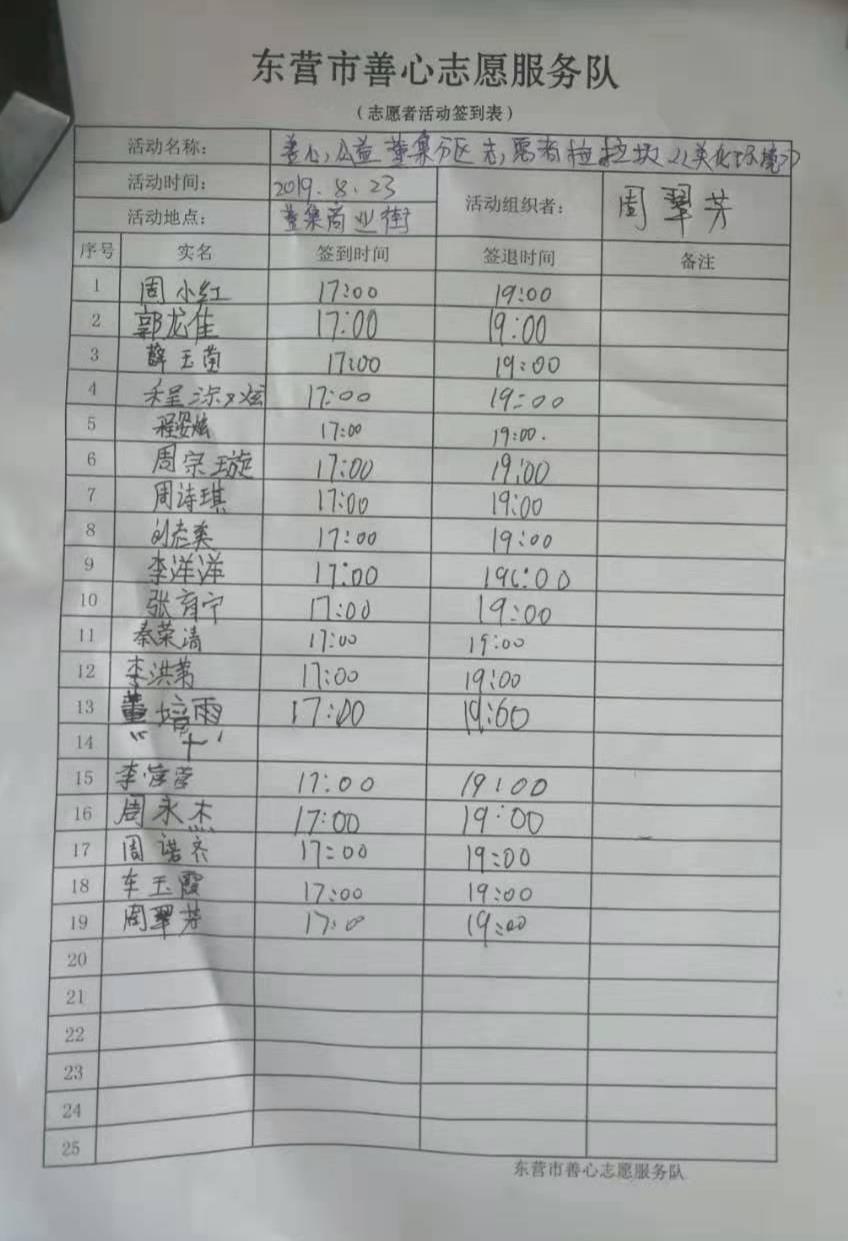 东营市善心志愿服务队
（志愿者活动签到表）
活动名称： 善心公益董集分区志愿者捡垃圾《美化环境》
活动时间： 2019.8.23
活动组织者： 周翠芳
活动地点： 董集商业街
序号 实名 签到时间 签退时间 备注
1 周小红 17:00 19:00
2 郭龙佳 17:00 19:00
3 薛玉苗 17:00 19:00
4 17:00 19:00
5 程安炫 17:00 19:00.
6 周宗璇 17:00 19:00
7 周诗琪 17:00 19:00
8 17:00 19:00
9 李洋洋 17:00 19:00
10 张育宁 17:00 19:00
11 秦荣清 17:00 19:00
12 17:00 19:00
13 董培雨 17:00 19:00
14
15 17:00 19:00
16 周永杰 17:00 19:00
17 周诺齐 17:00 19:00
18 车玉霞 17:00 19:00
19 周翠芳 17:0 19:00
20
21
22
23
24
25
东营市善心志愿服务队